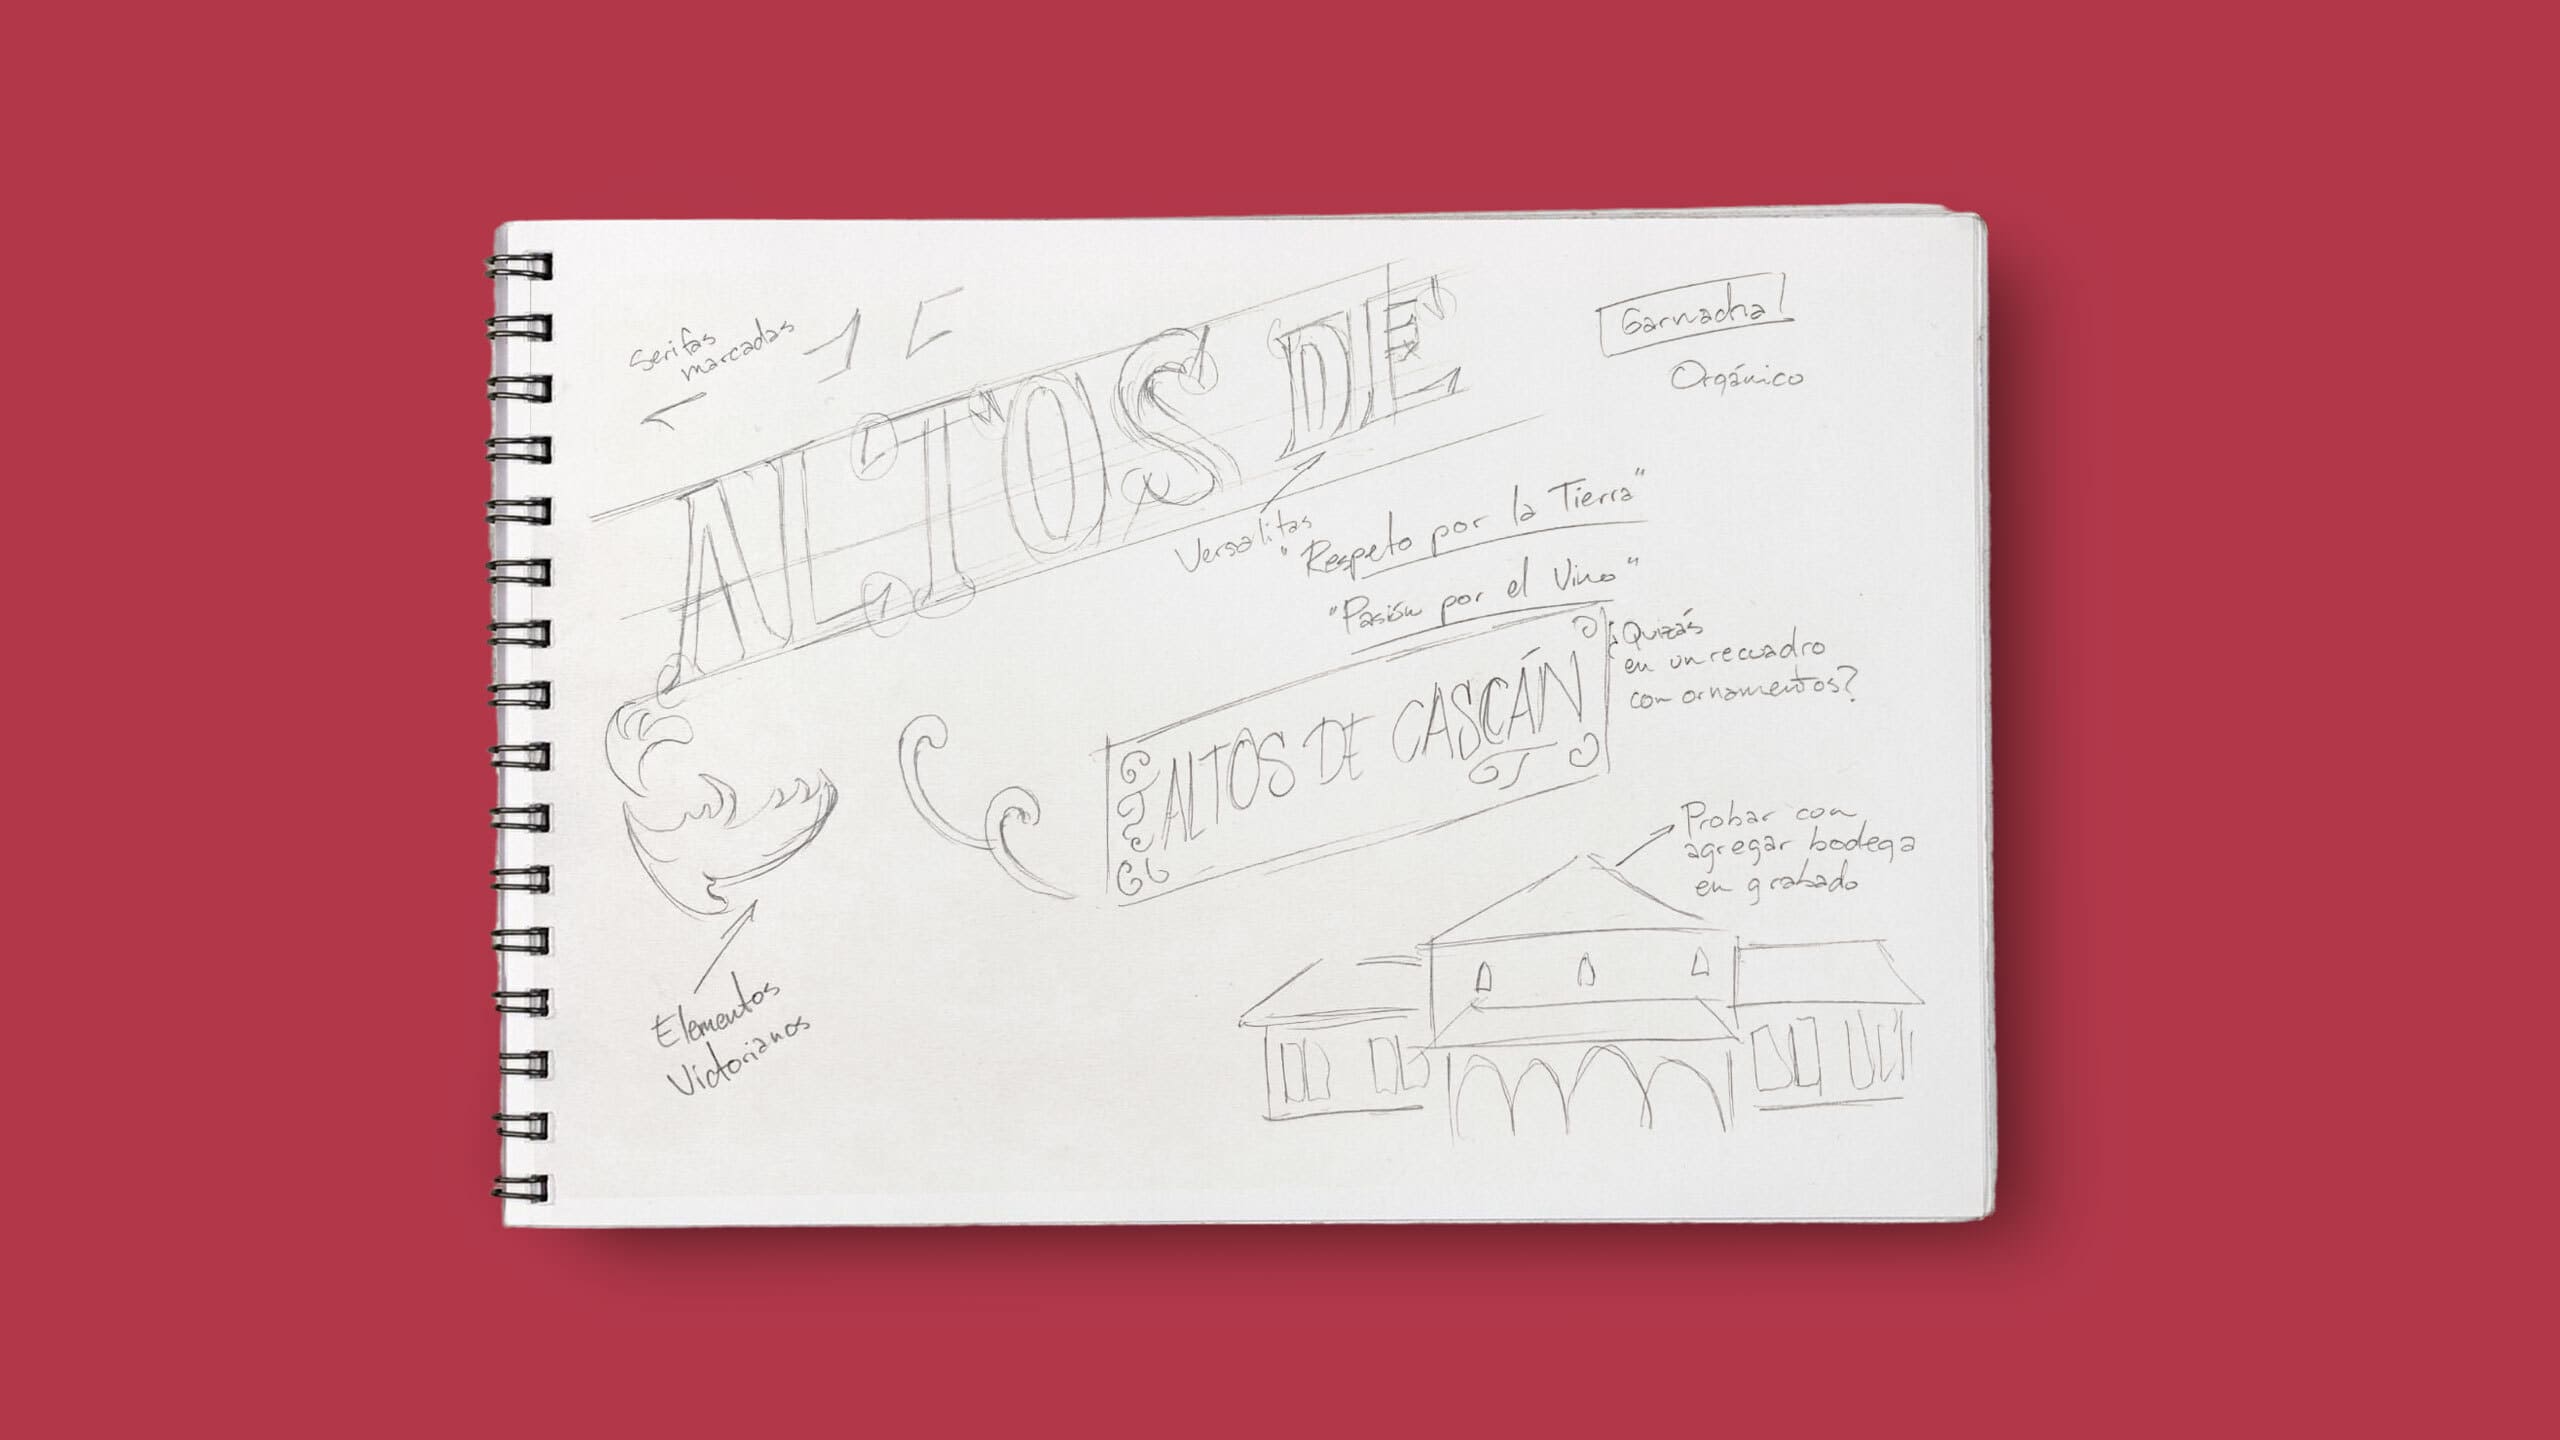 Serifas
marcadas
ALTOS DE
Garnacha
Orgánico
Versalitas
"Respeto por la Tierra"
"Pasión por el Vino"
ALTOS DE CASCÁN
Quizás
en un recuadro
con ornamentos?
Probar con
agregar bodega
en grabado
Elementos
Victorianos